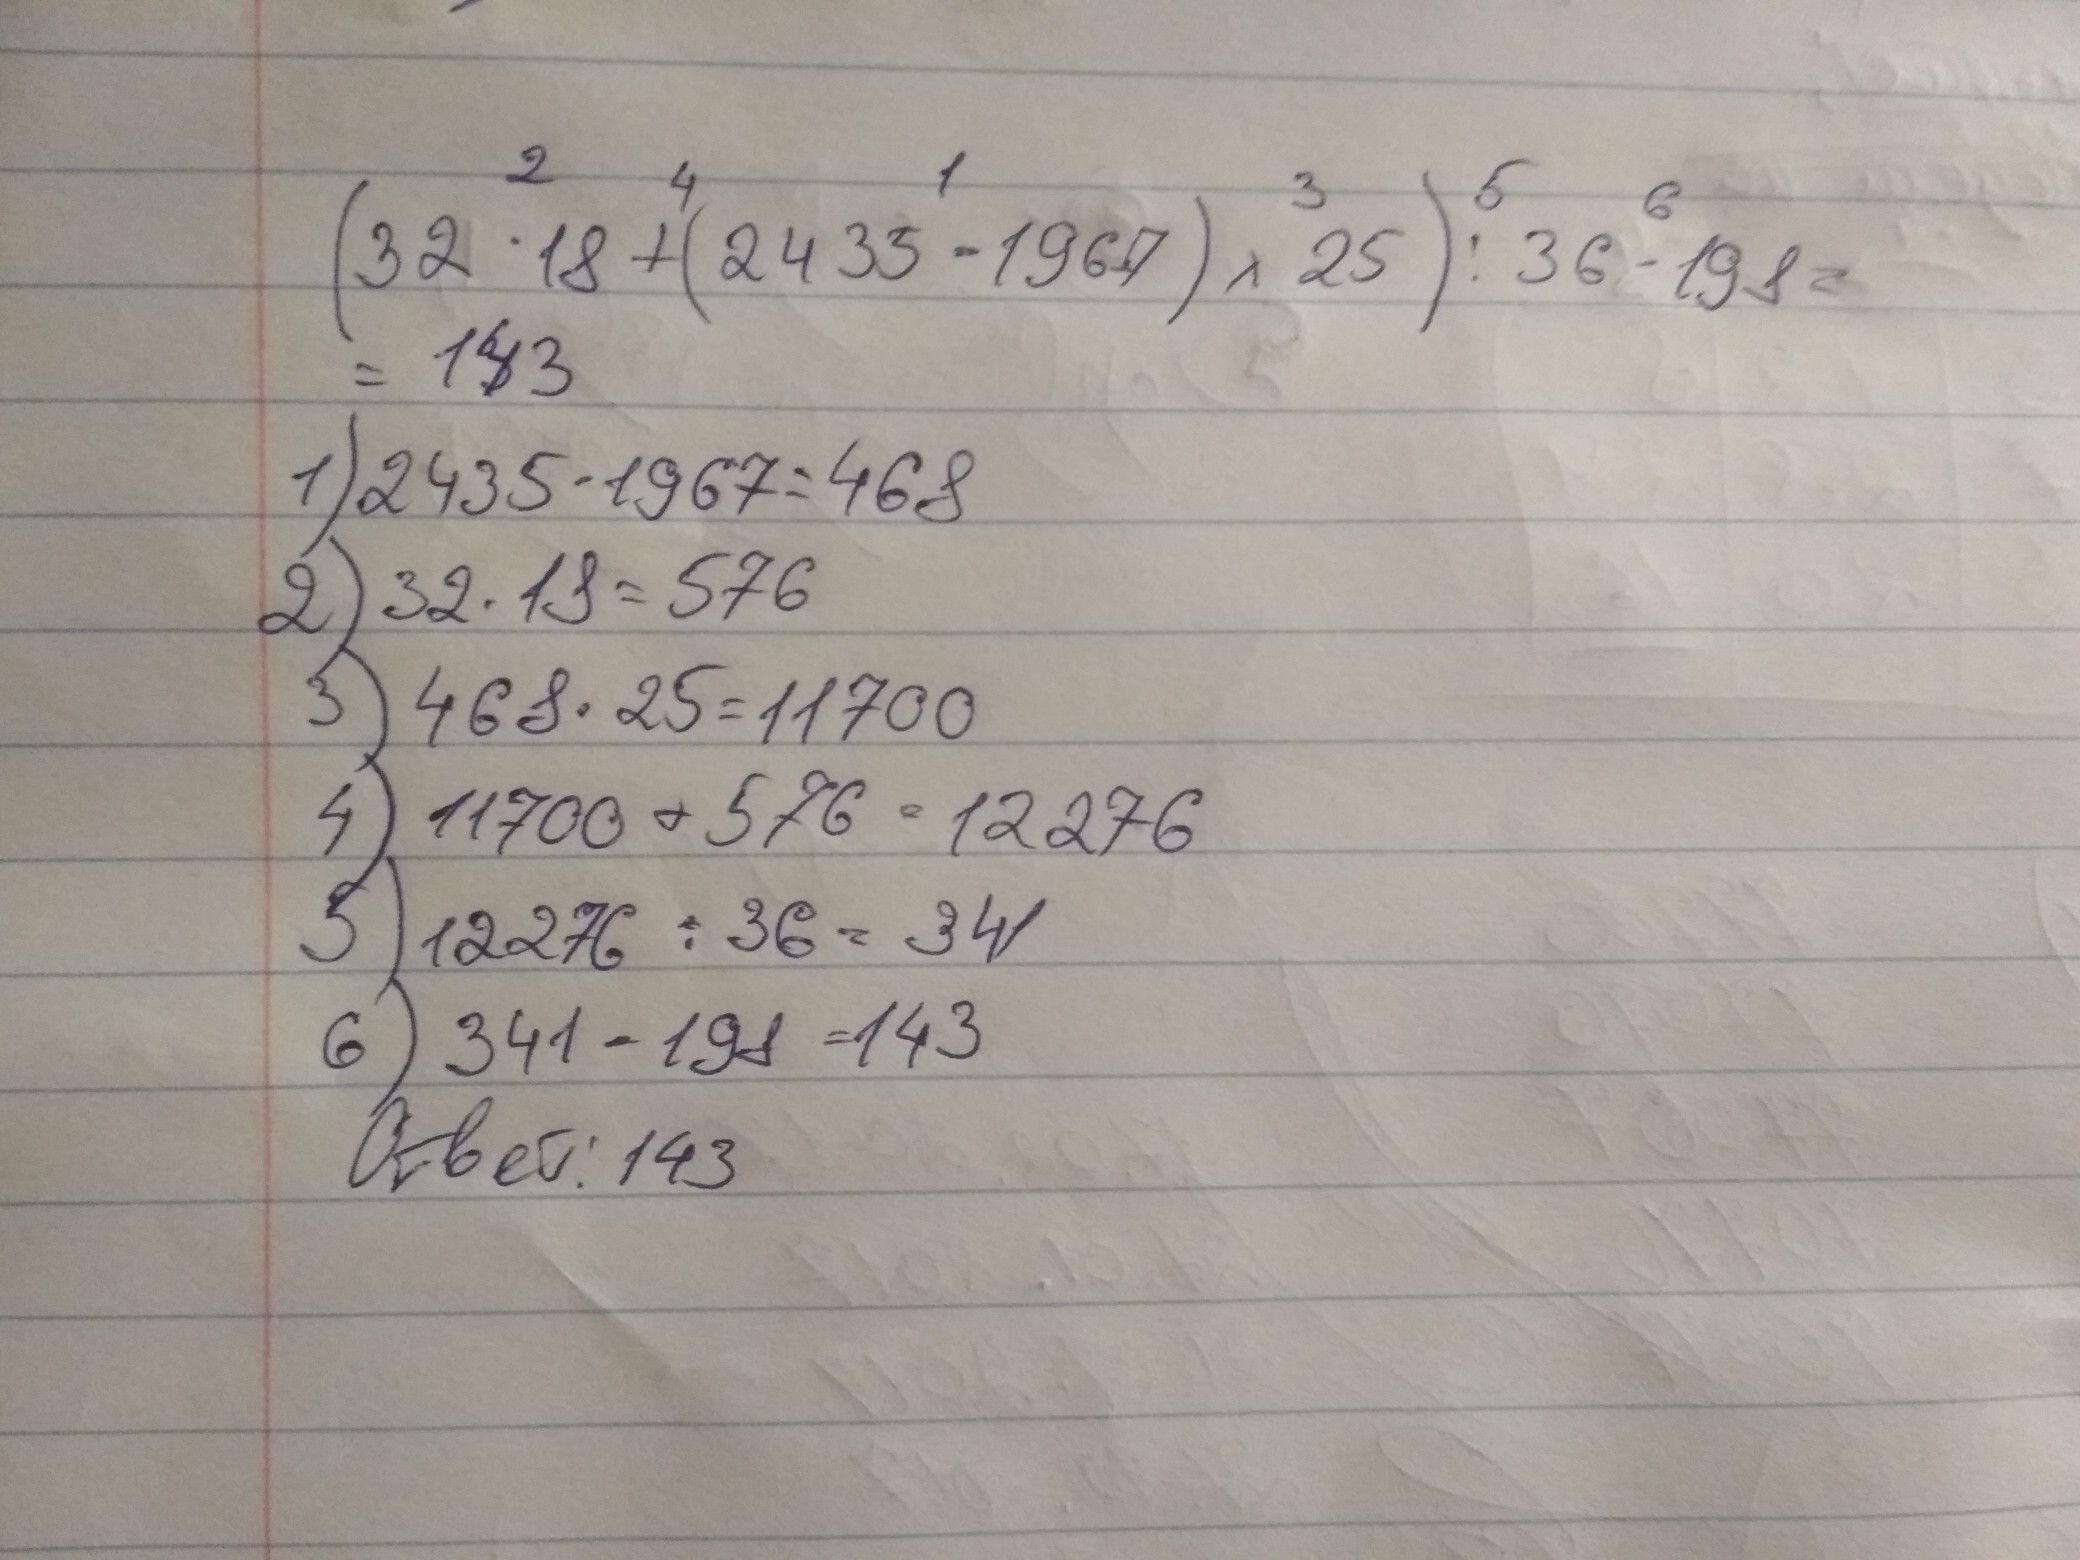 2 4 1 3 5 6
(32 · 18 + (2435 - 1967) x 25) : 36 - 198 =
= 143
1) 2435 - 1967 = 468
2) 32 · 18 = 576
3) 468 · 25 = 11700
4) 11700 + 576 = 12276
5) 12276 ÷ 36 = 341
6) 341 - 198 = 143
Ответ: 143